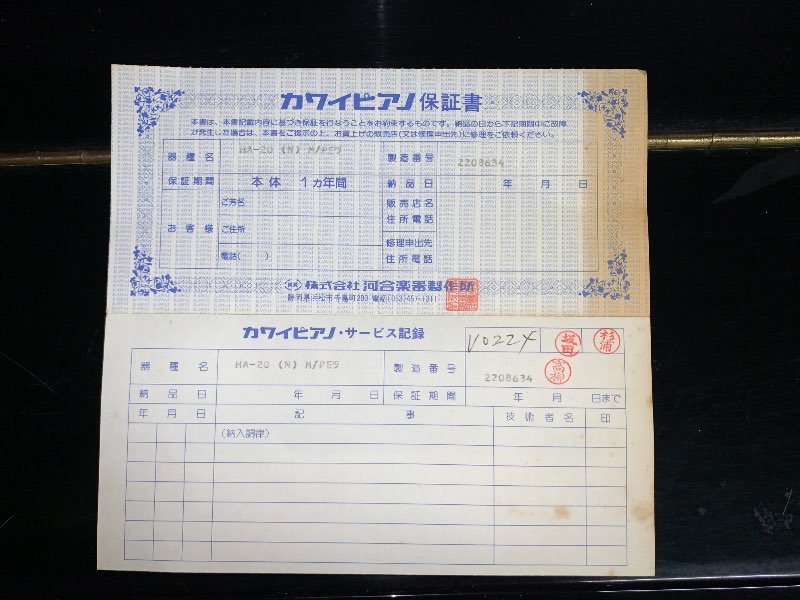 カワイピアノ 保証書
本書は、本書記載内容に基づき保証を行なうことをお約束するものです。納品の日から下記期間中に故障
が発生した場合は、本書をご提示の上、お買上げの販売店(又は修理申出先)に修理をご依頼ください。
器種名 HA-20 (N) M/Pエウ 製造番号 2208634
保証期間 本体 1ヵ年間 納品日 年 月 日
お客様 ご芳名 販売店名
住所電話
ご住所
修理申出先
電話( ) 住所電話
KK 株式会社 河合楽器製作所
静岡県浜松市寺島町200 電話(053)457-1311
カワイピアノ・サービス記録 V022X 坂田 杉浦
器種名 HA-20 (N) M/Pエウ 製造番号 2208634 高柳
納品日 年 月 日 保証期間 年 月 日まで
年月日 記事 技術者名 印
(納入調律)